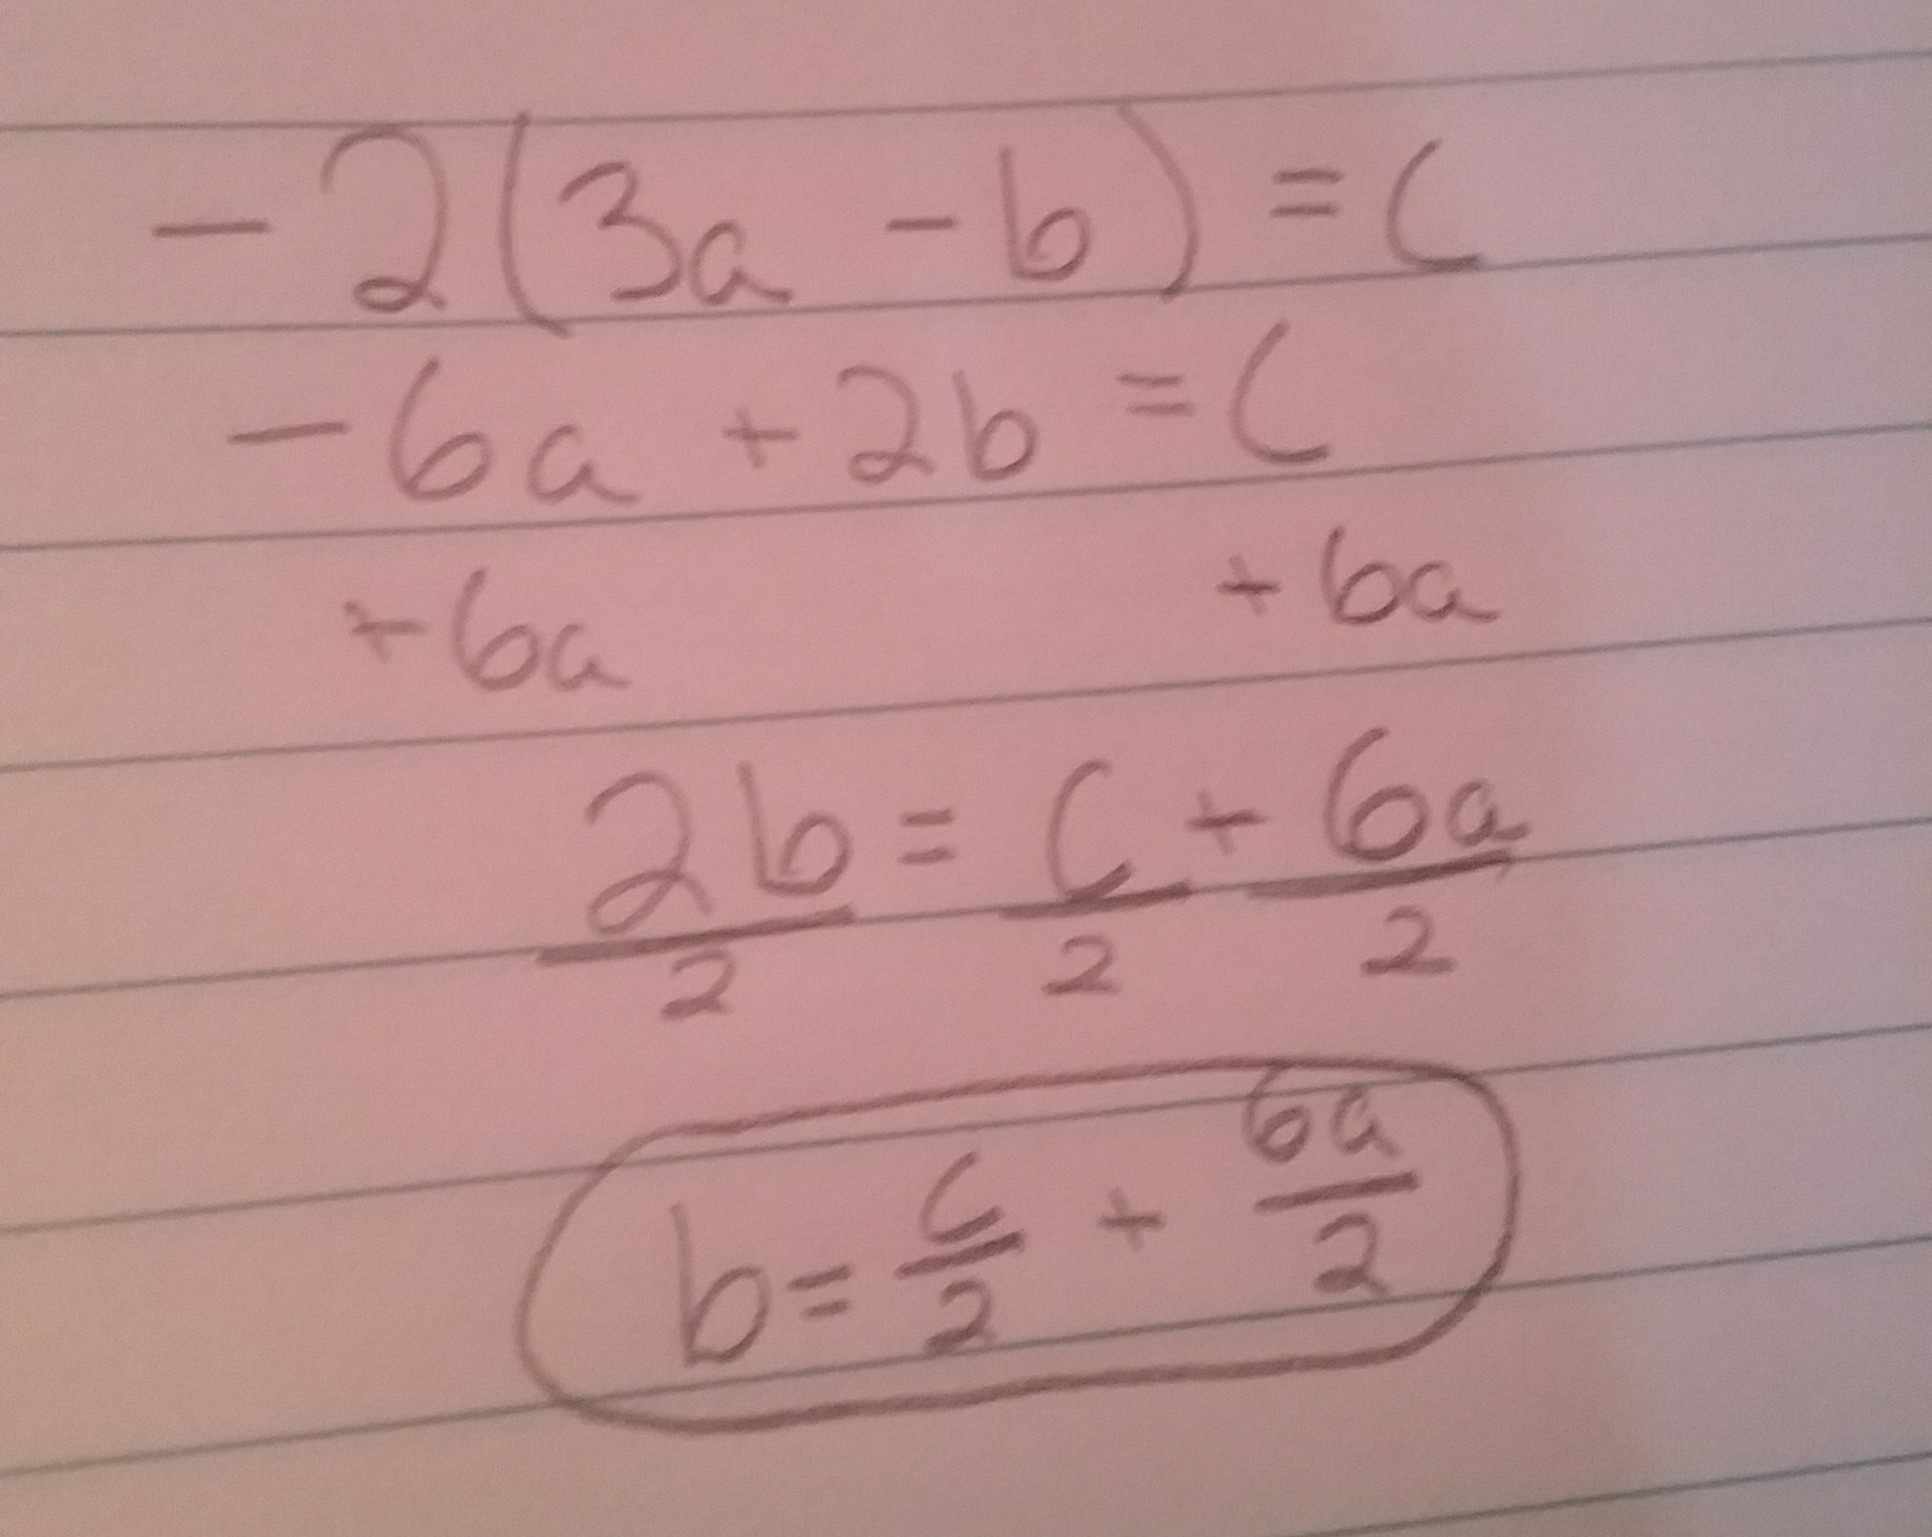 -2(3a - b) = c
-6a + 2b = c
+6a +6a
2b/2 = c/2 + 6a/2
b = c/2 + 6a/2